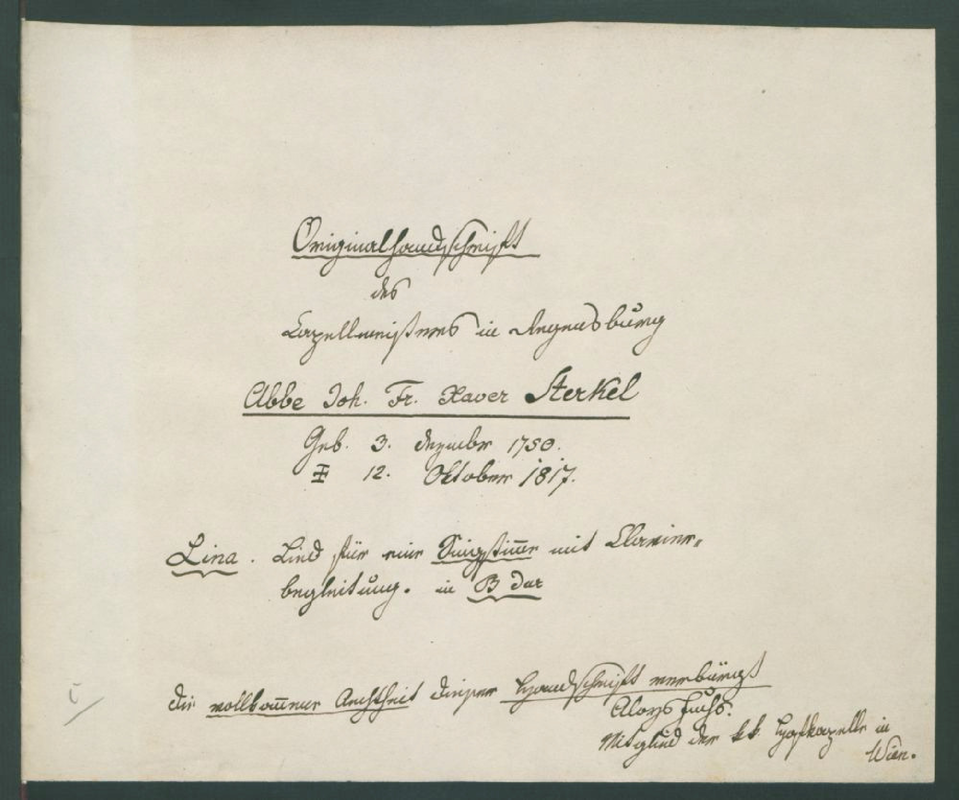 Originalhandschrift
des
Capellmeisters in Regensburg
Abbe Joh. Fr. Xaver Sterkel
Geb. 3. Dezember 1750.
12. Oktober 1817.
Lina. Lied für eine Singstimme mit Clavier-
begleitung. in B dur
die vollkommene Aechtheit dieser Handschrift verbürgt
Aloys Fuchs.
Mitglied der kk Hofkapelle in
Wien.